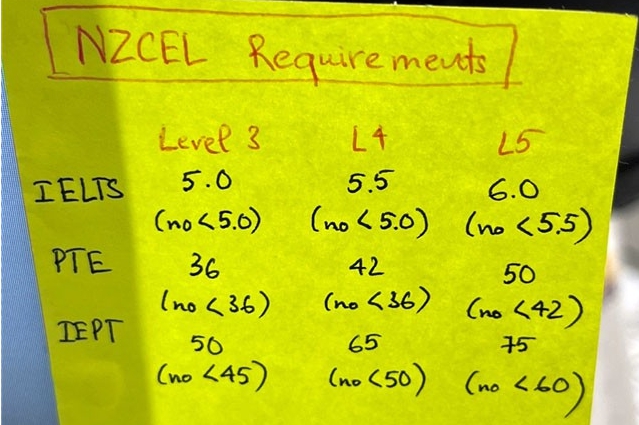 NZCEL Requirements
Level 3 L4 L5
IELTS 5.0 5.5 6.0
(no <5.0) (no <5.0) (no <5.5)
PTE 36 42 50
(no <36) (no <36) (no <42)
IEPT 50 65 75
(no <45) (no <50) (no <60)